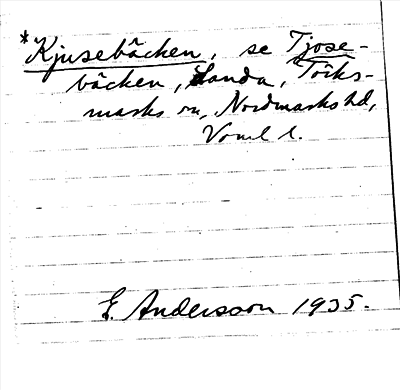 *Kjusebäcken, se Tjose-
bäcken, Landa, Töcks-
marks sn, Nordmarks hd,
Värml l.
E. Andersson 1935.